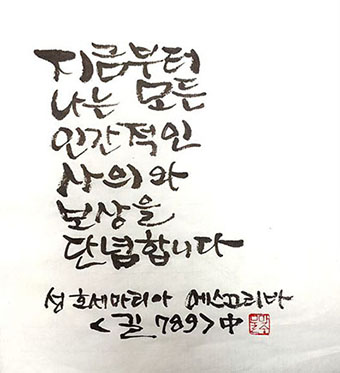 지금부터
나는 모든
인간적인
사의와
보상을
단념합니다
성 호세마리아 에스끄리바
<길 789> 中